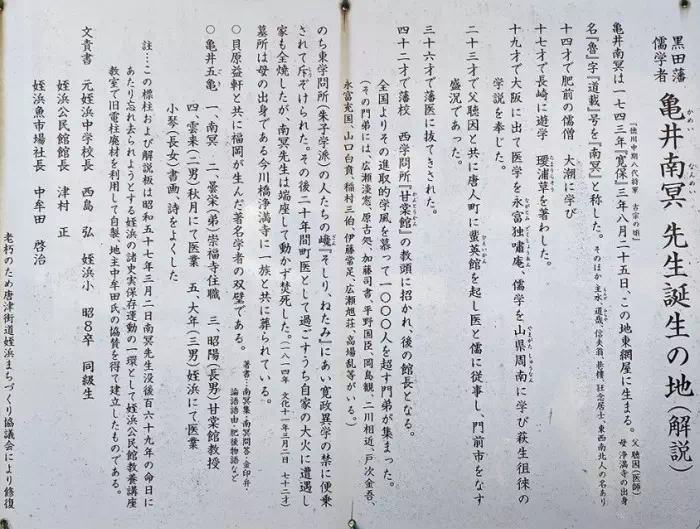 黒田藩
儒学者
亀井南冥 先生誕生の地(解説)
かめ い なん めい
『徳川中期八代将軍 吉宗の頃』
亀井南冥は一七四三年『寛保』三年八月二十五日、この地東網屋に生まる。
父 聴因(医師)
母 浄満寺の出身
名『魯』字『道載』号を『南冥』と称した。
そのほか 主水、道哉、信天翁、苞樓、狂念居士、東西南北人の名あり
十四才で肥前の儒僧 大潮に学び
十七才で長崎に遊学 瓊浦草を著わした。
十九才で大阪に出て医学を永富独嘯庵、儒学を山県周南に学び萩生徂徠の
学説を奉じた。
二十三才で父聴因と共に唐人町に蜚英館を起し医と儒に従事し、門前市をなす
盛況であった。
三十六才で藩医に抜てきされた。
四十二才で藩校 西学問所『甘棠館』の教頭に招かれ、後の館長となる。
全国よりその進取的学風を慕って一〇〇〇人を超す門弟が集まった。
(その門弟には、広瀬淡窓、原古処、加藤司書、平野国臣、岡島観、二川相近、戸次金吾、
永富充国、山口白賁、稲村三伯、伊藤常足、広瀬旭荘、高場乱等がいる。)
のち東学問所(朱子学派)の人たちの嶮『そしり、ねたみ』にあい寛政異学の禁に便乗
されて斥ぞけられた。その後二十年間町医として過ごすうち自家の大火に遭遇し
家も全焼したが、南冥先生は端座して動かず焚死した。(一八一四年 文化十一年三月二日 七十二才)
墓所は母の出身である今川橋浄満寺に一族と共に葬られている。
○貝原益軒と共に福岡が生んだ著名学者の双璧である。
著書…南冥集・南冥問答・金印弁・
論語語由・肥後物語など
○亀井五亀 一、南冥 二、曇栄(弟)崇福寺住職 三、昭陽(長男)甘棠館教授
四、雲来(二男)秋月にて医業 五、大年(三男)姪浜にて医業
小琴(長女)書画、詩をよくした
註…この標柱および解説板は昭和五十七年三月二日南冥先生没後百六十九年の命日に
あたり忘れ去られようとする姪浜の諸史実保存運動の一環として姪浜公民館教養講座
教室で旧電柱廃材を利用して自製、地主中牟田氏の協賛を得て建立したものである。
文責者 元姪浜中学校長 西島 弘 姪浜小 昭8卒 同級生
姪浜公民館館長 津村 正
姪浜魚市場社長 中牟田 啓治
老朽のため唐津街道姪浜まちづくり協議会により修復